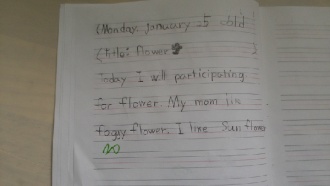 (Monday. January 25 old
(title: flower )
Today I will participating
for flower. My mom like
foggy flower. I like Sun flowe
NO